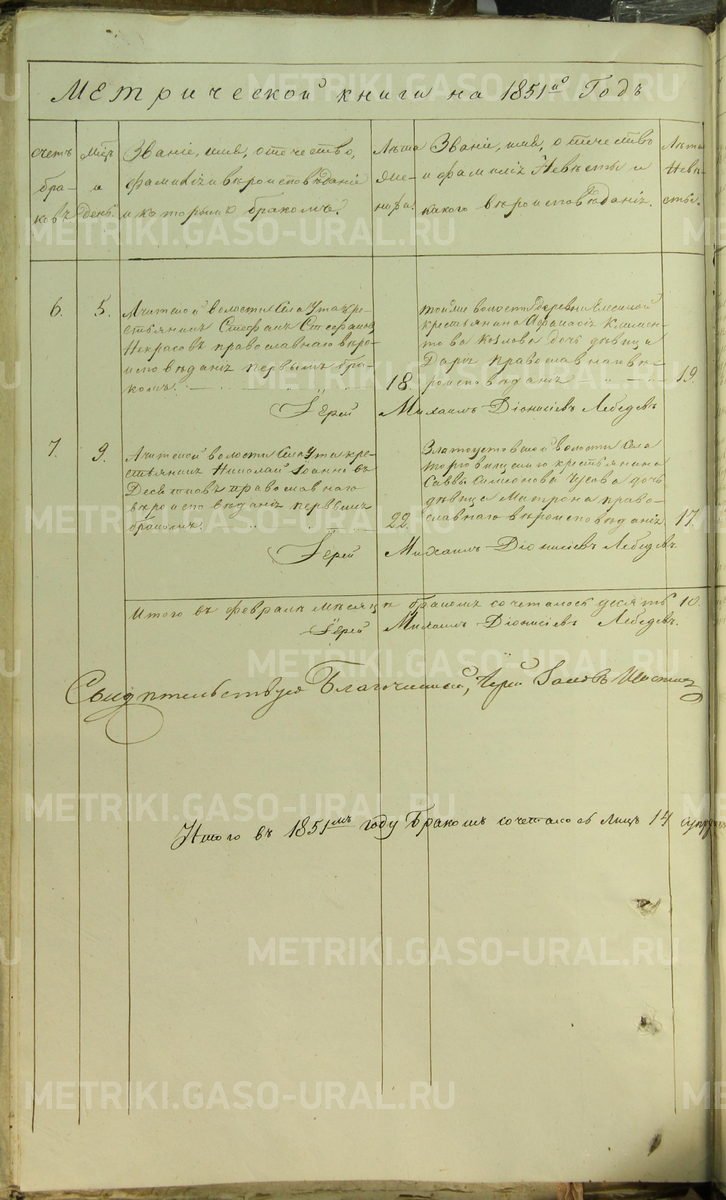 Метрической книги на 1851й Годъ
счетъ
бра-
ковъ
мѣс.
и
день.
Званіе, имя, отечество,
фамилія и вѣроисповѣданіе
и которымъ бракомъ.
Лѣта
же-
ниха.
Званіе, имя, отечество
и фамилія Невѣсты и
какого вѣроисповѣданія.
Лѣта
Невѣ-
сты.
6. 5.
волости Села Утки кре-
стьянинъ Стефанъ Стефановъ
Некрасовъ православнаго вѣро-
исповѣданія первымъ бра-
комъ. 18
тойже волости деревни
крестьянина Афанасія Климен-
това Козлова дочь дѣвица
Дарья православнаго вѣ-
роисповѣданія 19.
Іерей Михаилъ Діонисіевъ Лебедевъ
7. 9.
волости Села Утки кре-
стьянинъ Николай Іоанновъ
Десятковъ православнаго
вѣроисповѣданія первымъ
бракомъ. 22.
Златоустовской волости Села
крестьянина
Саввы Симеонова Чусова дочь
дѣвица Матрона право-
славнаго вѣроисповѣданія 17.
Іерей Михаилъ Діонисіевъ Лебедевъ.
Итого въ февралѣ мѣсяцѣ бракомъ сочеталось десять 10.
Іерей Михаилъ Діонисіевъ Лебедевъ.
Свидѣтельствую Благочинный, Іерей
Итого въ 1851мъ году Бракомъ сочеталось Лицъ 14
METRIKI.GASO-URAL.RU